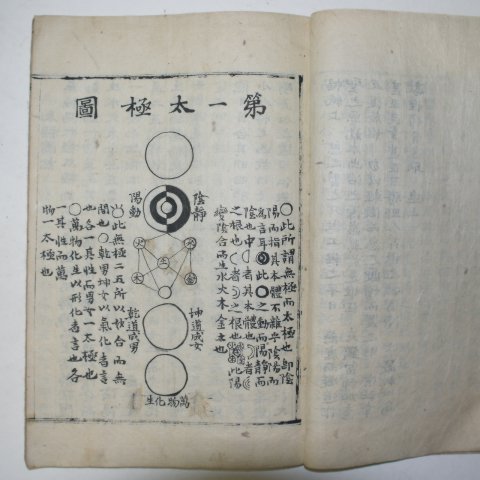 第一太極圖
○此所謂無極而太極也卽陰
陽而指其本體不雜乎陰陽而
爲言耳◉此○之動而陽靜而
陰也中○者其本體也☽者☾
之根也☾者☽之根也此陽
變陰合而生水火木金土也
陰靜
陽動
水
火
土
金
木
坤道成女
乾道成男
萬物化生
此無極二五所以妙合而無
間也○乾男坤女以氣化者言
也各一其性而男女一太極也
○萬物化生以形化者言也各
一其性而萬
物一太極也